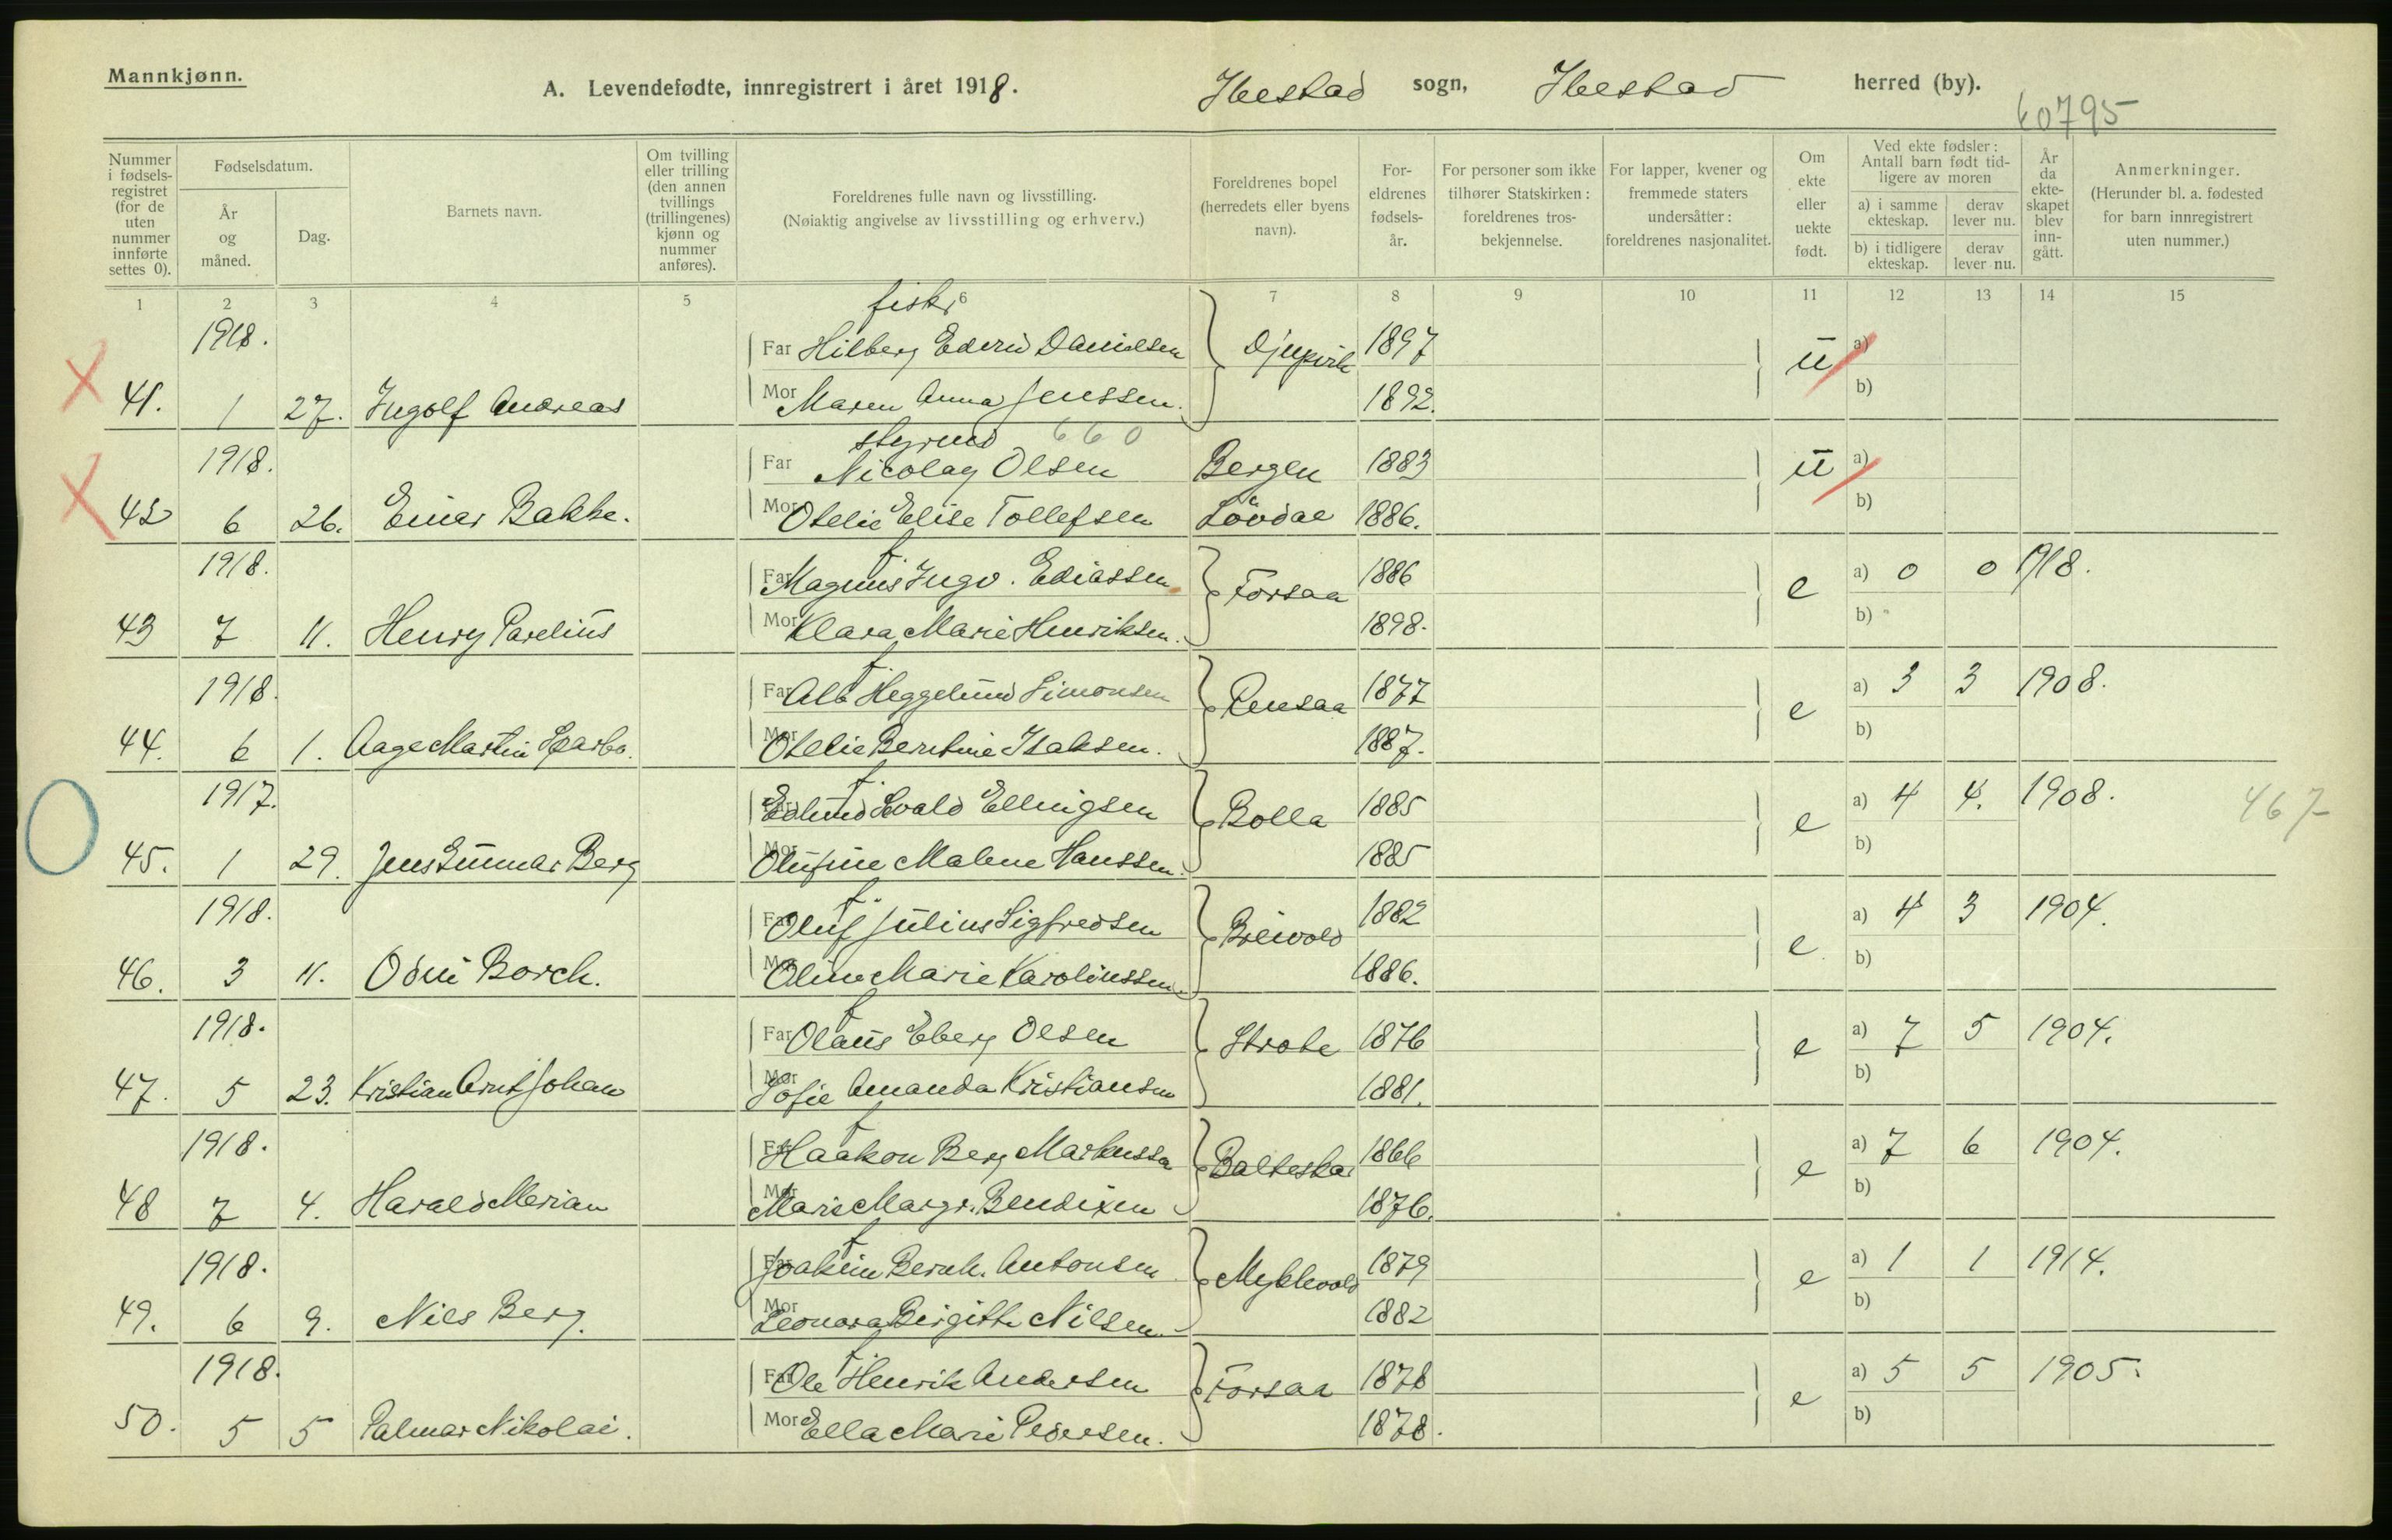 Mannkjønn.
A. Levendefødte, innregistrert i året 1918. Ibestad sogn, Ibestad herred (by).
60795
Nummer i fødselsregistret (for de uten nummer innførte settes 0).
Fødselsdatum.
År og måned.
Dag.
Barnets navn.
Om tvilling eller trilling (den annen tvillings (trillingenes) kjønn og nummer anføres).
Foreldrenes fulle navn og livsstilling.
(Nøiaktig angivelse av livsstilling og erhverv.)
Foreldrenes bopel (herredets eller byens navn).
Foreldrenes fødselsår.
For personer som ikke tilhører Statskirken: foreldrenes trosbekjennelse.
For lapper, kvener og fremmede staters undersåtter: foreldrenes nasjonalitet.
Om ekte eller uekte født.
Ved ekte fødsler: Antall barn født tidligere av moren
a) i samme ekteskap.
derav lever nu.
b) i tidligere ekteskap.
derav lever nu.
År da ekteskapet blev inngått.
Anmerkninger.
(Herunder bl. a. fødested for barn innregistrert uten nummer.)
1 2 3 4 5 6 7 8 9 10 11 12 13 14 15
fisk.
1918. Far Hilberg Edvin Danielsen Djupvik 1897 ü a)
41. 1 27. Ingolf Andreas Mor Maren Anna Jenssen. 1892. b)
styrmd 660
1918. Far Nicolay Olsen Bergen 1883 ü a)
42 6 26. Einar Bakke. Mor Otelie Elise Tollefsen Løvdal 1886. b)
f.
1918. Far Magnus Ingv. Ediassen Forsaa 1886 e a) 0 0 1918.
43 7 11. Henry Parelius Mor Klara Marie Henriksen. 1898. b)
f.
1918. Far Alb Heggelund Simonsen Rensaa 1877 e a) 3 3 1908.
44. 6 1. Aage Martin Sparbo. Mor Otelie Berntine Isaksen. 1887. b)
f.
1917. Far Edlund Evald Ellingsen Bolla 1885 e a) 4 4. 1908. 467
45. 1 29. Jens Gunnar Berg Mor Olufine Malene Hanssen. 1885 b)
f.
1918. Far Oluf Julius Sigfredsen Breivold 1882 e a) 4 3 1904.
46. 3 11. Odin Borch. Mor Oline Marie Karolinssen. 1886. b)
f
1918. Far Olaus Eberg Olsen 1876 e a) 7 5 1904.
47. 5 23. Kristian Arnt Johan Mor Sofie Amanda Kristiansen 1881. b)
f
1918. Far Haakon Berg Markussen Balteskar 1866 e a) 7 6 1904.
48 7 4. Harald Merian Mor Marie Margr. Bendixen 1876. b)
f
1918. Far Joakim Bernh. Antonsen Myklevold 1879 e a) 1 1 1914.
49. 6 9. Nils Berg. Mor Leonora Birgitte Nilsen. 1882 b)
f
1918. Far Ole Henrik Andersen Forsaa 1878 e a) 5 5 1905.
50. 5 5 Palmar Nikolai. Mor Ella Marie Pedersen. 1878. b)